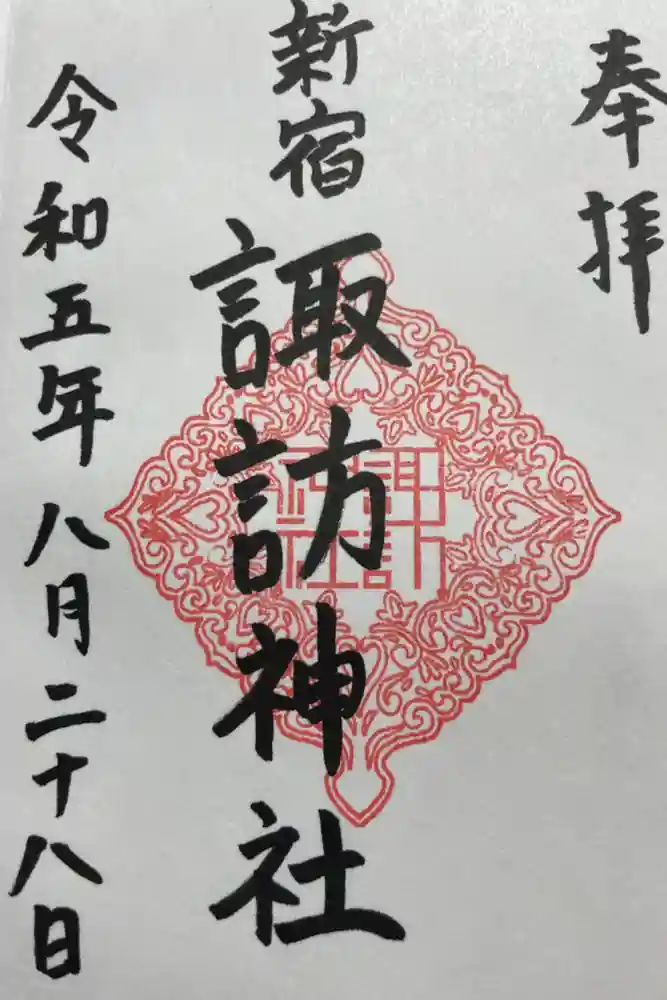 奉拝
新宿
諏訪神社
諏訪
神社
令和五年八月二十八日